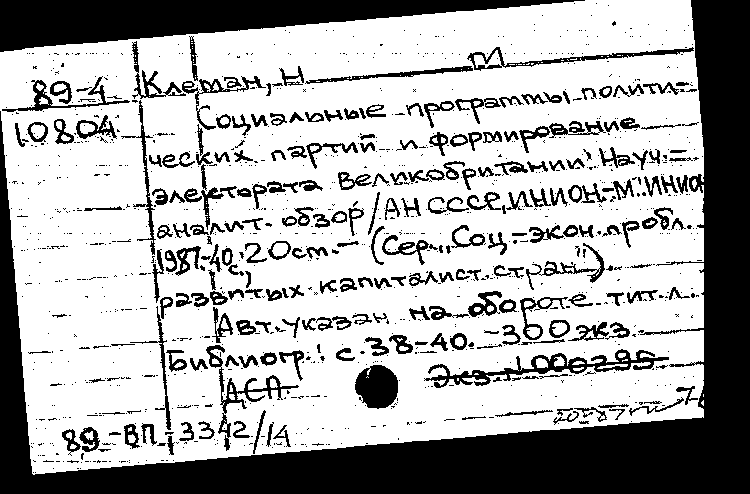 89-4 Клеман, Н
П
10804 Социальные программы полити=
ческих партий и формирование
электората Великобритании: Науч.=
аналит. обзор / АН СССР, ИНИОН.-М.: ИНИОН
1987.-40 с.; 20 см. - (Сер. „Соц.-экон. пробл.
развитых капиталист. стран").
Авт. указан на обороте тит. л.
Библиогр.: с. 38-40. - 300 экз.
ДСП Экз. N 000295
89-ВП-3342/14